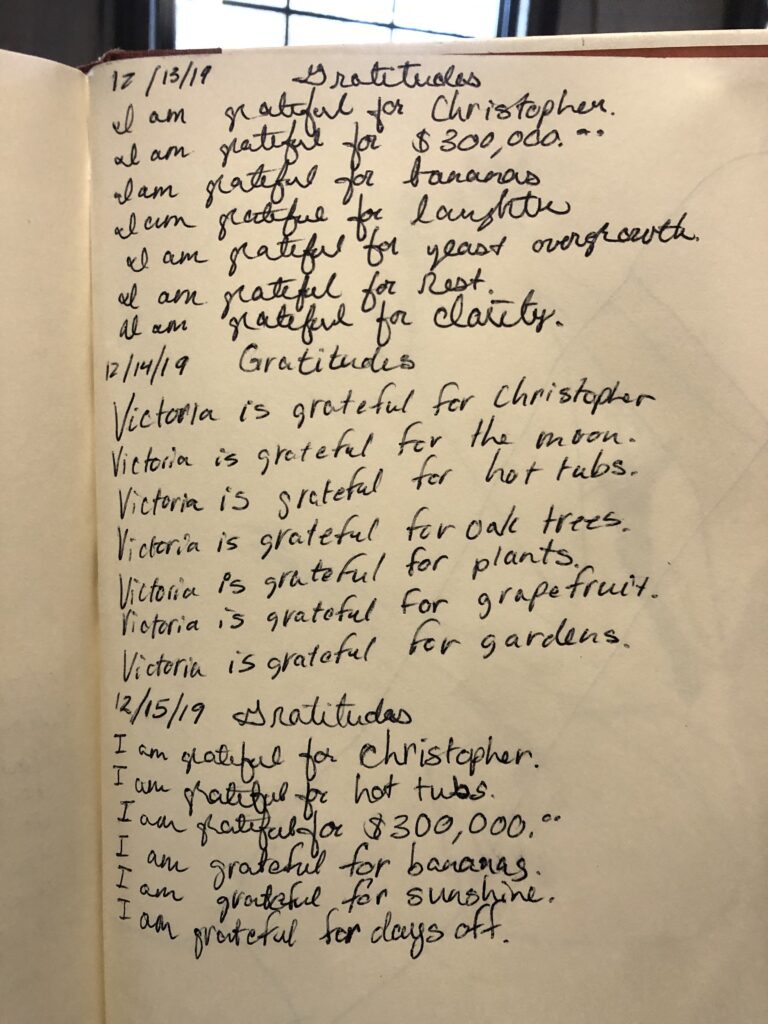 12/13/19 Gratitudes
I am grateful for Christopher.
I am grateful for $300,000.00
I am grateful for bananas
I am grateful for laughter
I am grateful for yeast overgrowth.
I am grateful for Rest.
I am grateful for clarity.
12/14/19 Gratitudes
Victoria is grateful for Christopher
Victoria is grateful for the moon.
Victoria is grateful for hot tubs.
Victoria is grateful for oak trees.
Victoria is grateful for plants.
Victoria is grateful for grapefruit.
Victoria is grateful for gardens.
12/15/19 Gratitudes
I am grateful for Christopher.
I am grateful for hot tubs.
I am grateful for $300,000.00
I am grateful for bananas.
I am grateful for sunshine.
I am grateful for days off.